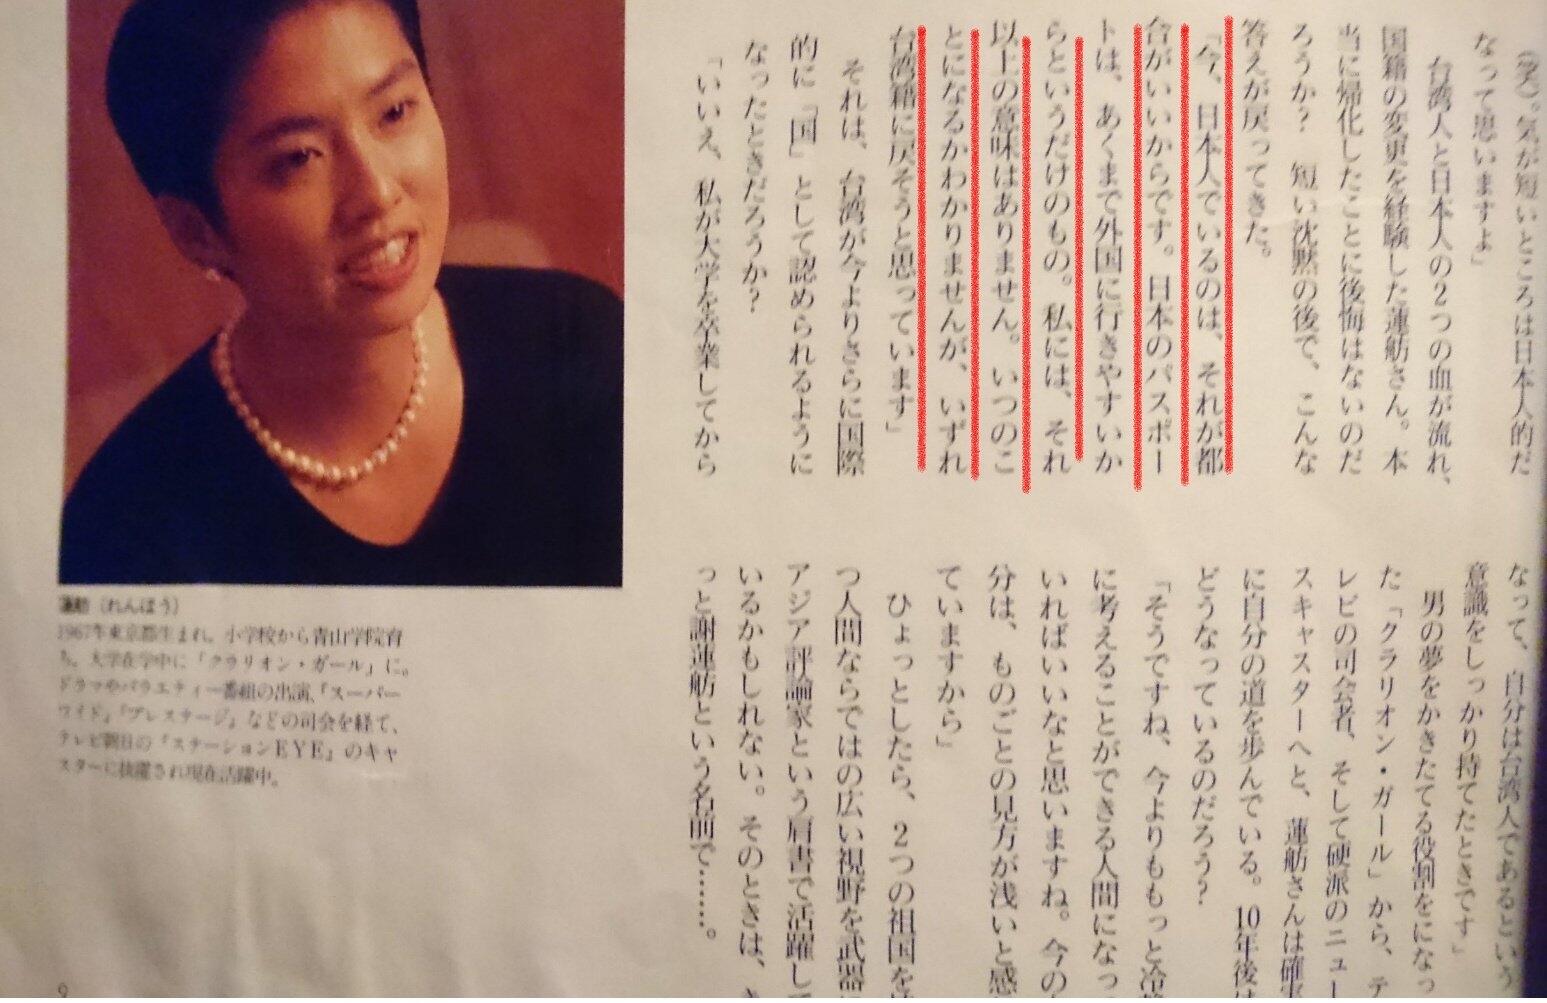 (笑)。気が短いところは日本人的だ
なって思いますよ」
台湾人と日本人の2つの血が流れ、
国籍の変更を経験した蓮舫さん。本
当に帰化したことに後悔はないのだ
ろうか? 短い沈黙の後で、こんな
答えが戻ってきた。
「今、日本人でいるのは、それが都
合がいいからです。日本のパスポー
トは、あくまで外国に行きやすいか
らというだけのもの。私には、それ
以上の意味はありません。いつのこ
とになるかわかりませんが、いずれ
台湾籍に戻そうと思っています」
それは、台湾が今よりさらに国際
的に「国」として認められるように
なったときだろうか?
「いいえ、私が大学を卒業してから
なって、自分は台湾人であるという
意識をしっかり持てたときです」
男の夢をかきたてる役割をになっ
た「クラリオン・ガール」から、テ
レビの司会者、そして硬派のニュー
スキャスターへと、蓮舫さんは確実
に自分の道を歩んでいる。10年後は
どうなっているのだろう?
「そうですね、今よりももっと冷静
に考えることができる人間になっ
いればいいなと思いますね。今の
分は、ものごとの見方が浅いと感
ていますから」
ひょっとしたら、2つの祖国を
つ人間ならではの広い視野を武器に
アジア評論家という肩書で活躍して
いるかもしれない。そのときは、
っと謝蓮舫という名前で……。
蓮舫(れんほう)
1967年東京都生まれ。小学校から青山学院育
ち。大学在学中に「クラリオン・ガール」に。
ドラマやバラエティー番組の出演、「スーパー
ワイド」「プレステージ」などの司会を経て、
テレビ朝日の「ステーションEYE」のキャ
スターに抜擢され現在活躍中。
9